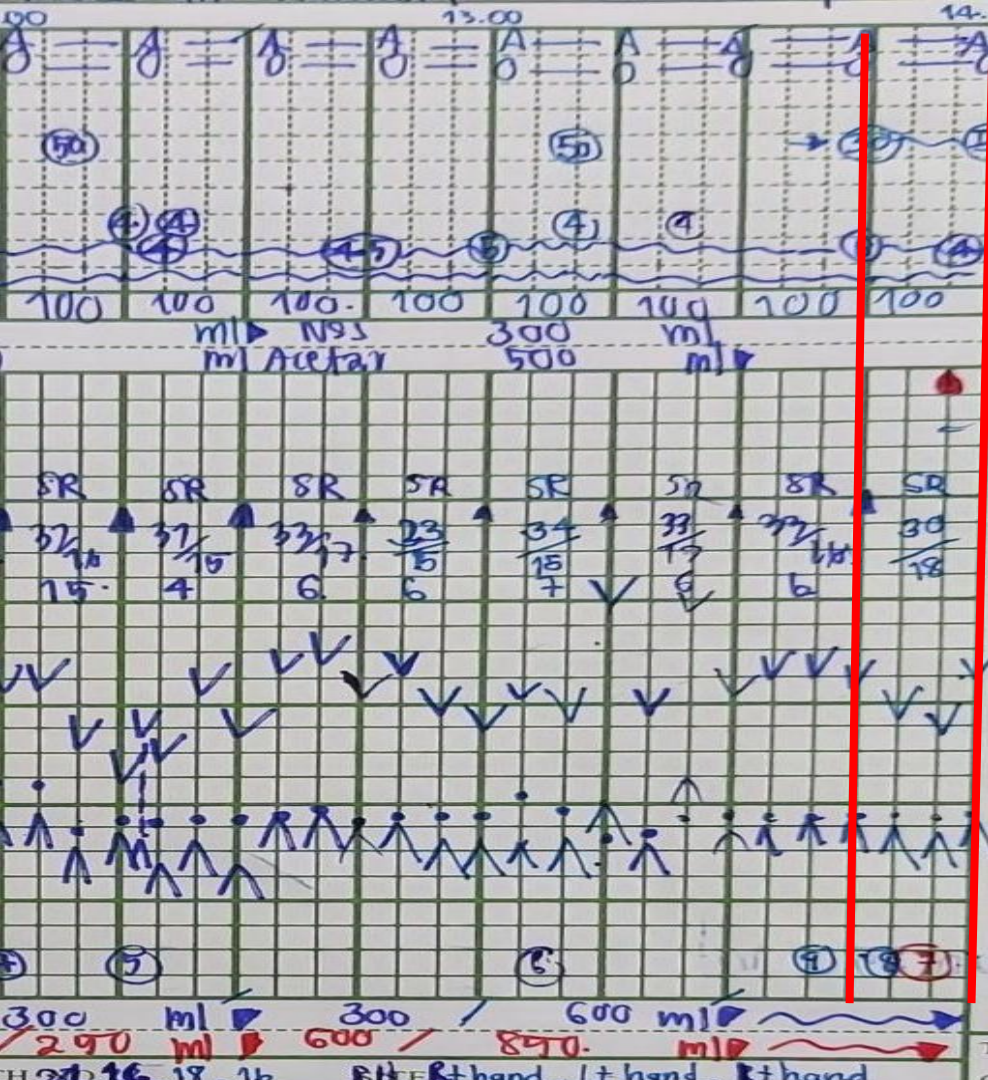 00 13.00 14.
A A A A A A A A A
O O O O O O O O O
50 50
4 4 4 4
4 4-5 5 4
100 100 100. 100 100 100 100 100
ml NSS 300 ml
ml Acetar 500 ml
SR SR SR SR SR SR SR SR
32 37 33 23 34 33 32 30
15 17 15 15 17 18
15. 4 6 6 7 6 6
5 6 9 8 7
300 ml 300 / 600 ml
/ 290 ml 600 / 890. ml
18 16 Rt hand Lt hand Rt hand